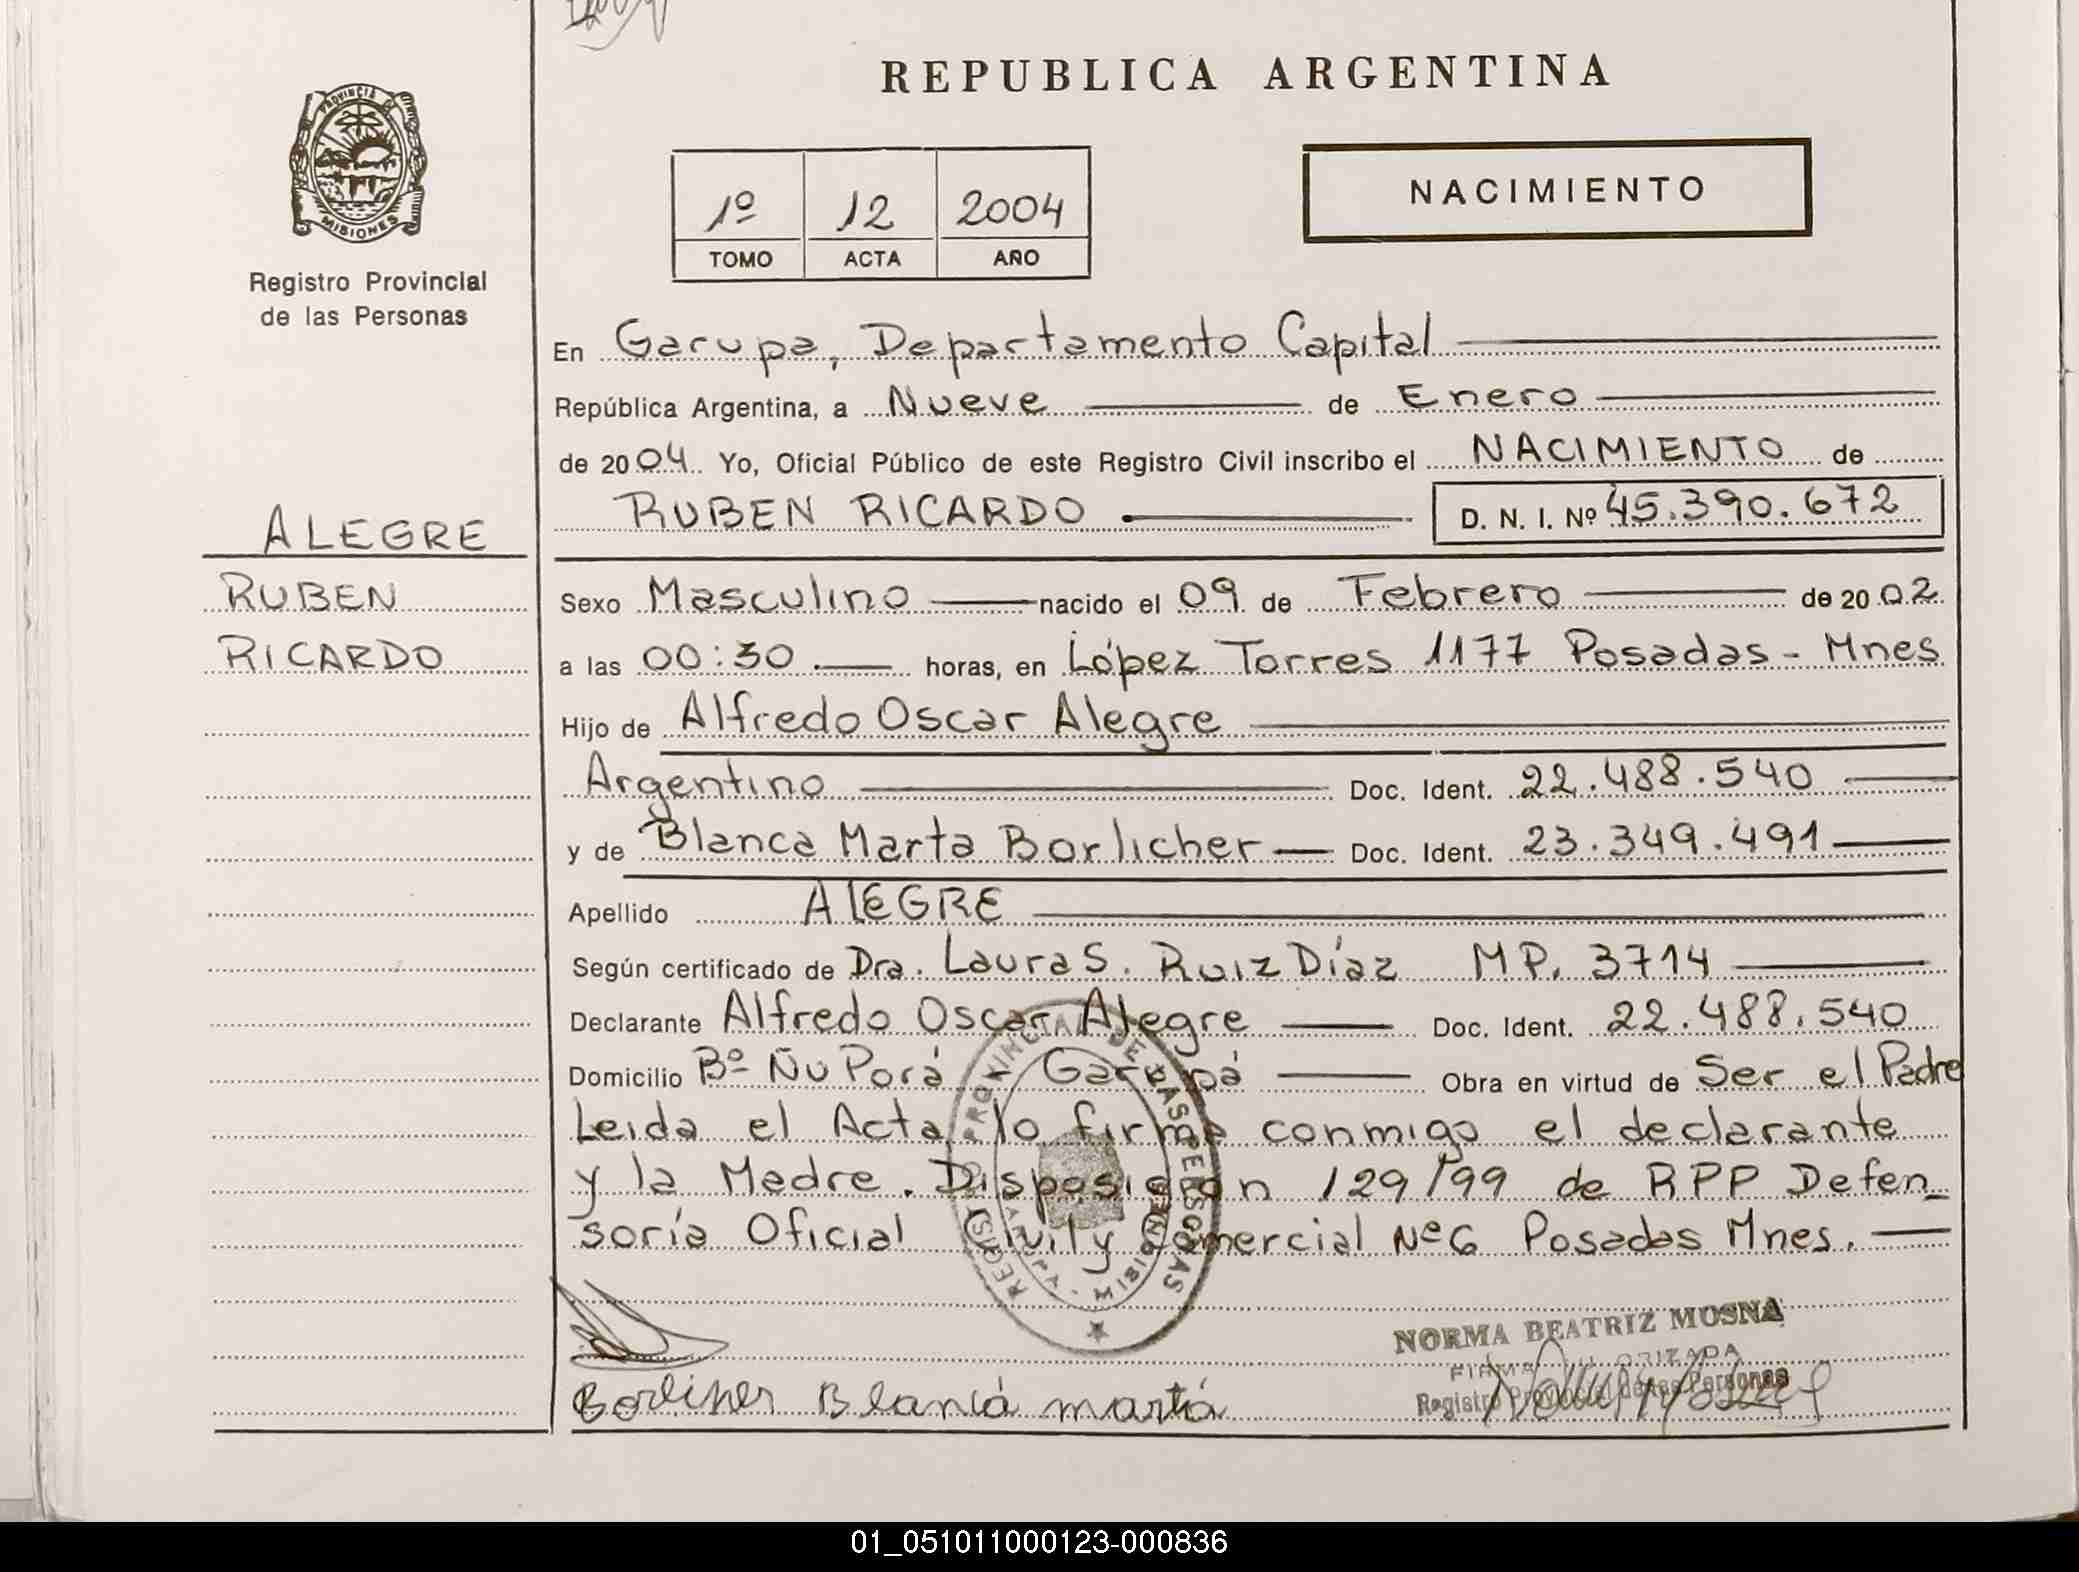 REPUBLICA ARGENTINA
PROVINCIA DE
MISIONES
Registro Provincial
de las Personas
1º 12 2004
TOMO ACTA AÑO
NACIMIENTO
En Garupa, Departamento Capital
República Argentina, a Nueve de Enero
de 2004. Yo, Oficial Público de este Registro Civil inscribo el NACIMIENTO de
RUBEN RICARDO D. N. I. Nº 45.390.672
ALEGRE
RUBEN
RICARDO
Sexo Masculino nacido el 09 de Febrero de 2002
a las 00:30 horas, en López Torres 1177 Posadas - Mnes
Hijo de Alfredo Oscar Alegre
Argentino Doc. Ident. 22.488.540
y de Blanca Marta Borlicher Doc. Ident. 23.349.491
Apellido ALEGRE
Según certificado de Dra. Laura S. Ruiz Díaz MP. 3714
Declarante Alfredo Oscar Alegre Doc. Ident. 22.488.540
Domicilio Bº Ñu Porá Garupá Obra en virtud de Ser el Padre
Leida el Acta, lo firma conmigo el declarante
y la Madre. Disposición 129/99 de RPP Defen_
soría Oficial Civil y Comercial Nº6 Posadas Mnes.
REGISTRO PROVINCIAL DE LAS PERSONAS
MISIONES
NORMA BEATRIZ MOSNA
FIRMA AUTORIZADA
Registro Provincial de las Personas
Blanca marta
01_051011000123-000836